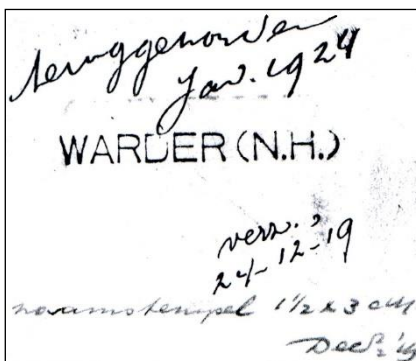 teruggezonden
Jan. 1924
WARDER (N.H.)
verz.
24-12-19
naamstempel 1½ x 3 cM
Dec